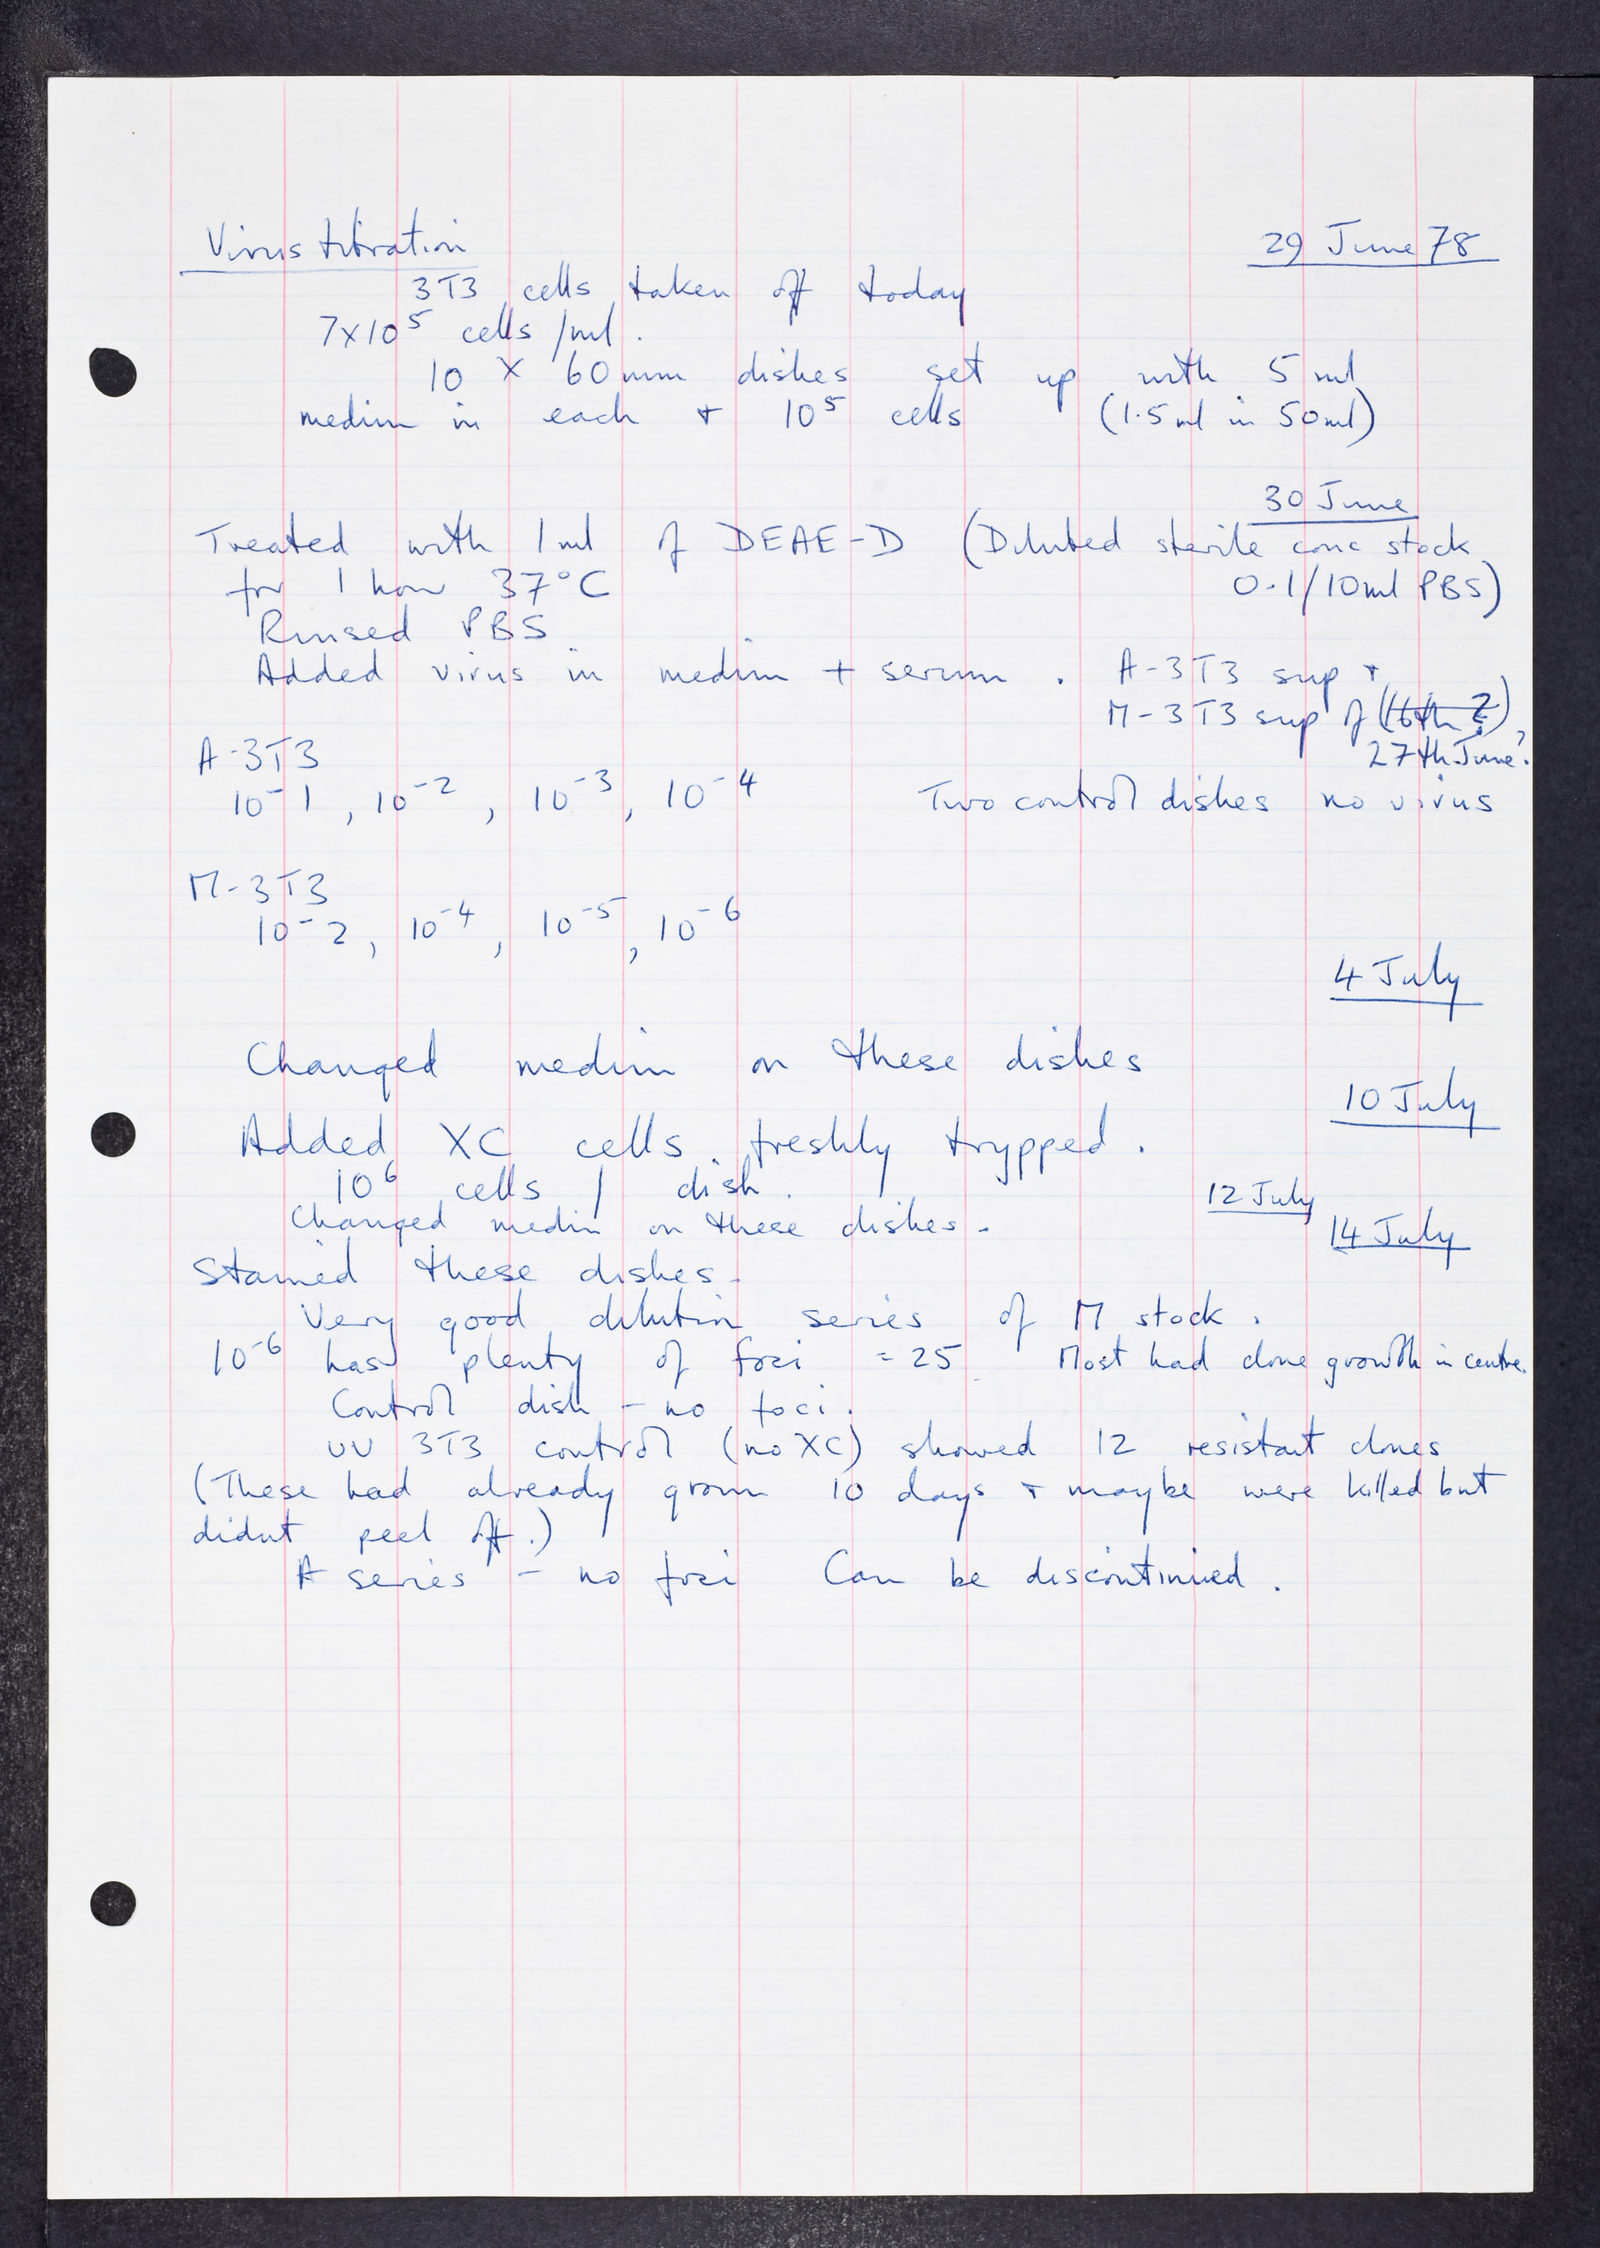 Virus titration 29 June 78
3T3 cells taken off today
7x10⁵ cells/ml.
10 x 60mm dishes set up with 5 ml
medium in each + 10⁵ cells (1.5ml in 50ml)
30 June
Treated with 1ml of DEAE-D (Diluted sterile conc stock
for 1 hour 37°C 0.1/10ml PBS)
Rinsed PBS
Added virus in medium + serum. A-3T3 sup +
M-3T3 sup of (16th ?),
A-3T3 27th June.
10⁻1, 10⁻², 10⁻³, 10⁻⁴ Two control dishes no virus
M-3T3
10⁻2, 10⁻⁴, 10⁻⁵, 10⁻⁶
4 July
Changed medium on these dishes
10 July
Added XC cells freshly trypped.
10⁶ cells / dish. 12 July
Changed medium on these dishes. 14 July
Stained these dishes.
Very good dilution series of M stock.
10⁻⁶ has plenty of foci = 25 Most had clone growth in centre.
Control dish - no foci.
UV 3T3 control (no XC) showed 12 resistant clones
(These had already grown 10 days + maybe were killed but
didnt peel off.)
A series - no foci Can be discontinued.